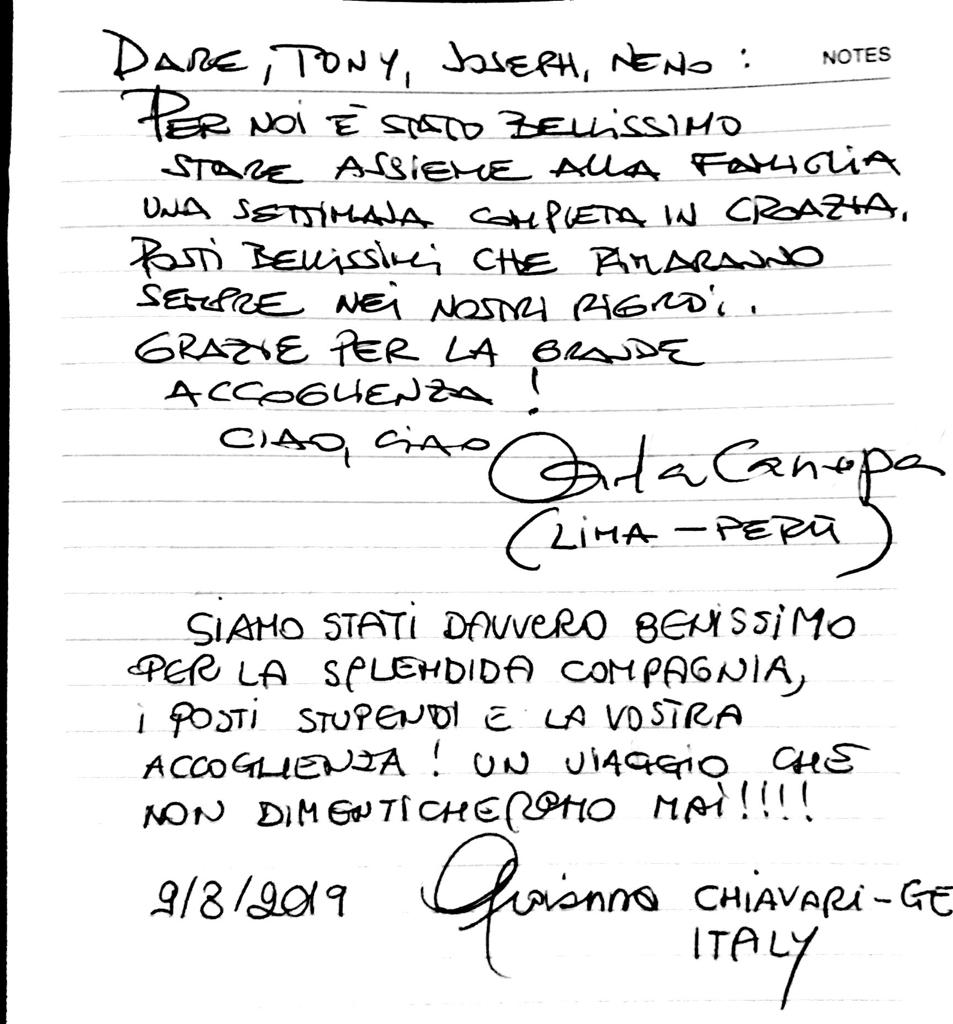 DARE, TONY, JOSEPH, NENO : NOTES
PER NOI È STATO BELLISSIMO
STARE ASSIEME ALLA FAMIGLIA
UNA SETTIMANA COMPLETA IN CROAZIA.
POSTI BELLISSIMI CHE RIMARANNO
SEMPRE NEI NOSTRI
GRAZIE PER LA GRANDE
ACCOGLIENZA !
CIAO, CIAO Carla Canepa
(LIMA - PERÙ)
SIAMO STATI DAVVERO BENISSIMO
PER LA SPLENDIDA COMPAGNIA,
I POSTI STUPENDI E LA VOSTRA
ACCOGLIENZA ! UN VIAGGIO CHE
NON DIMENTICHEREMO MAI!!!!
2/8/2019 CHIAVARI - GE
ITALY